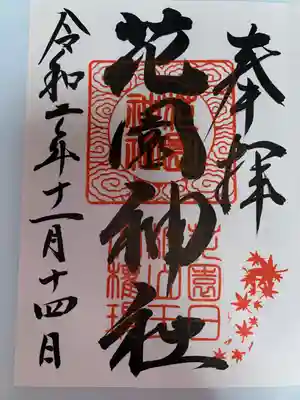 奉拝
花園神社
令和二年十一月十四日
花園
神社
花園日